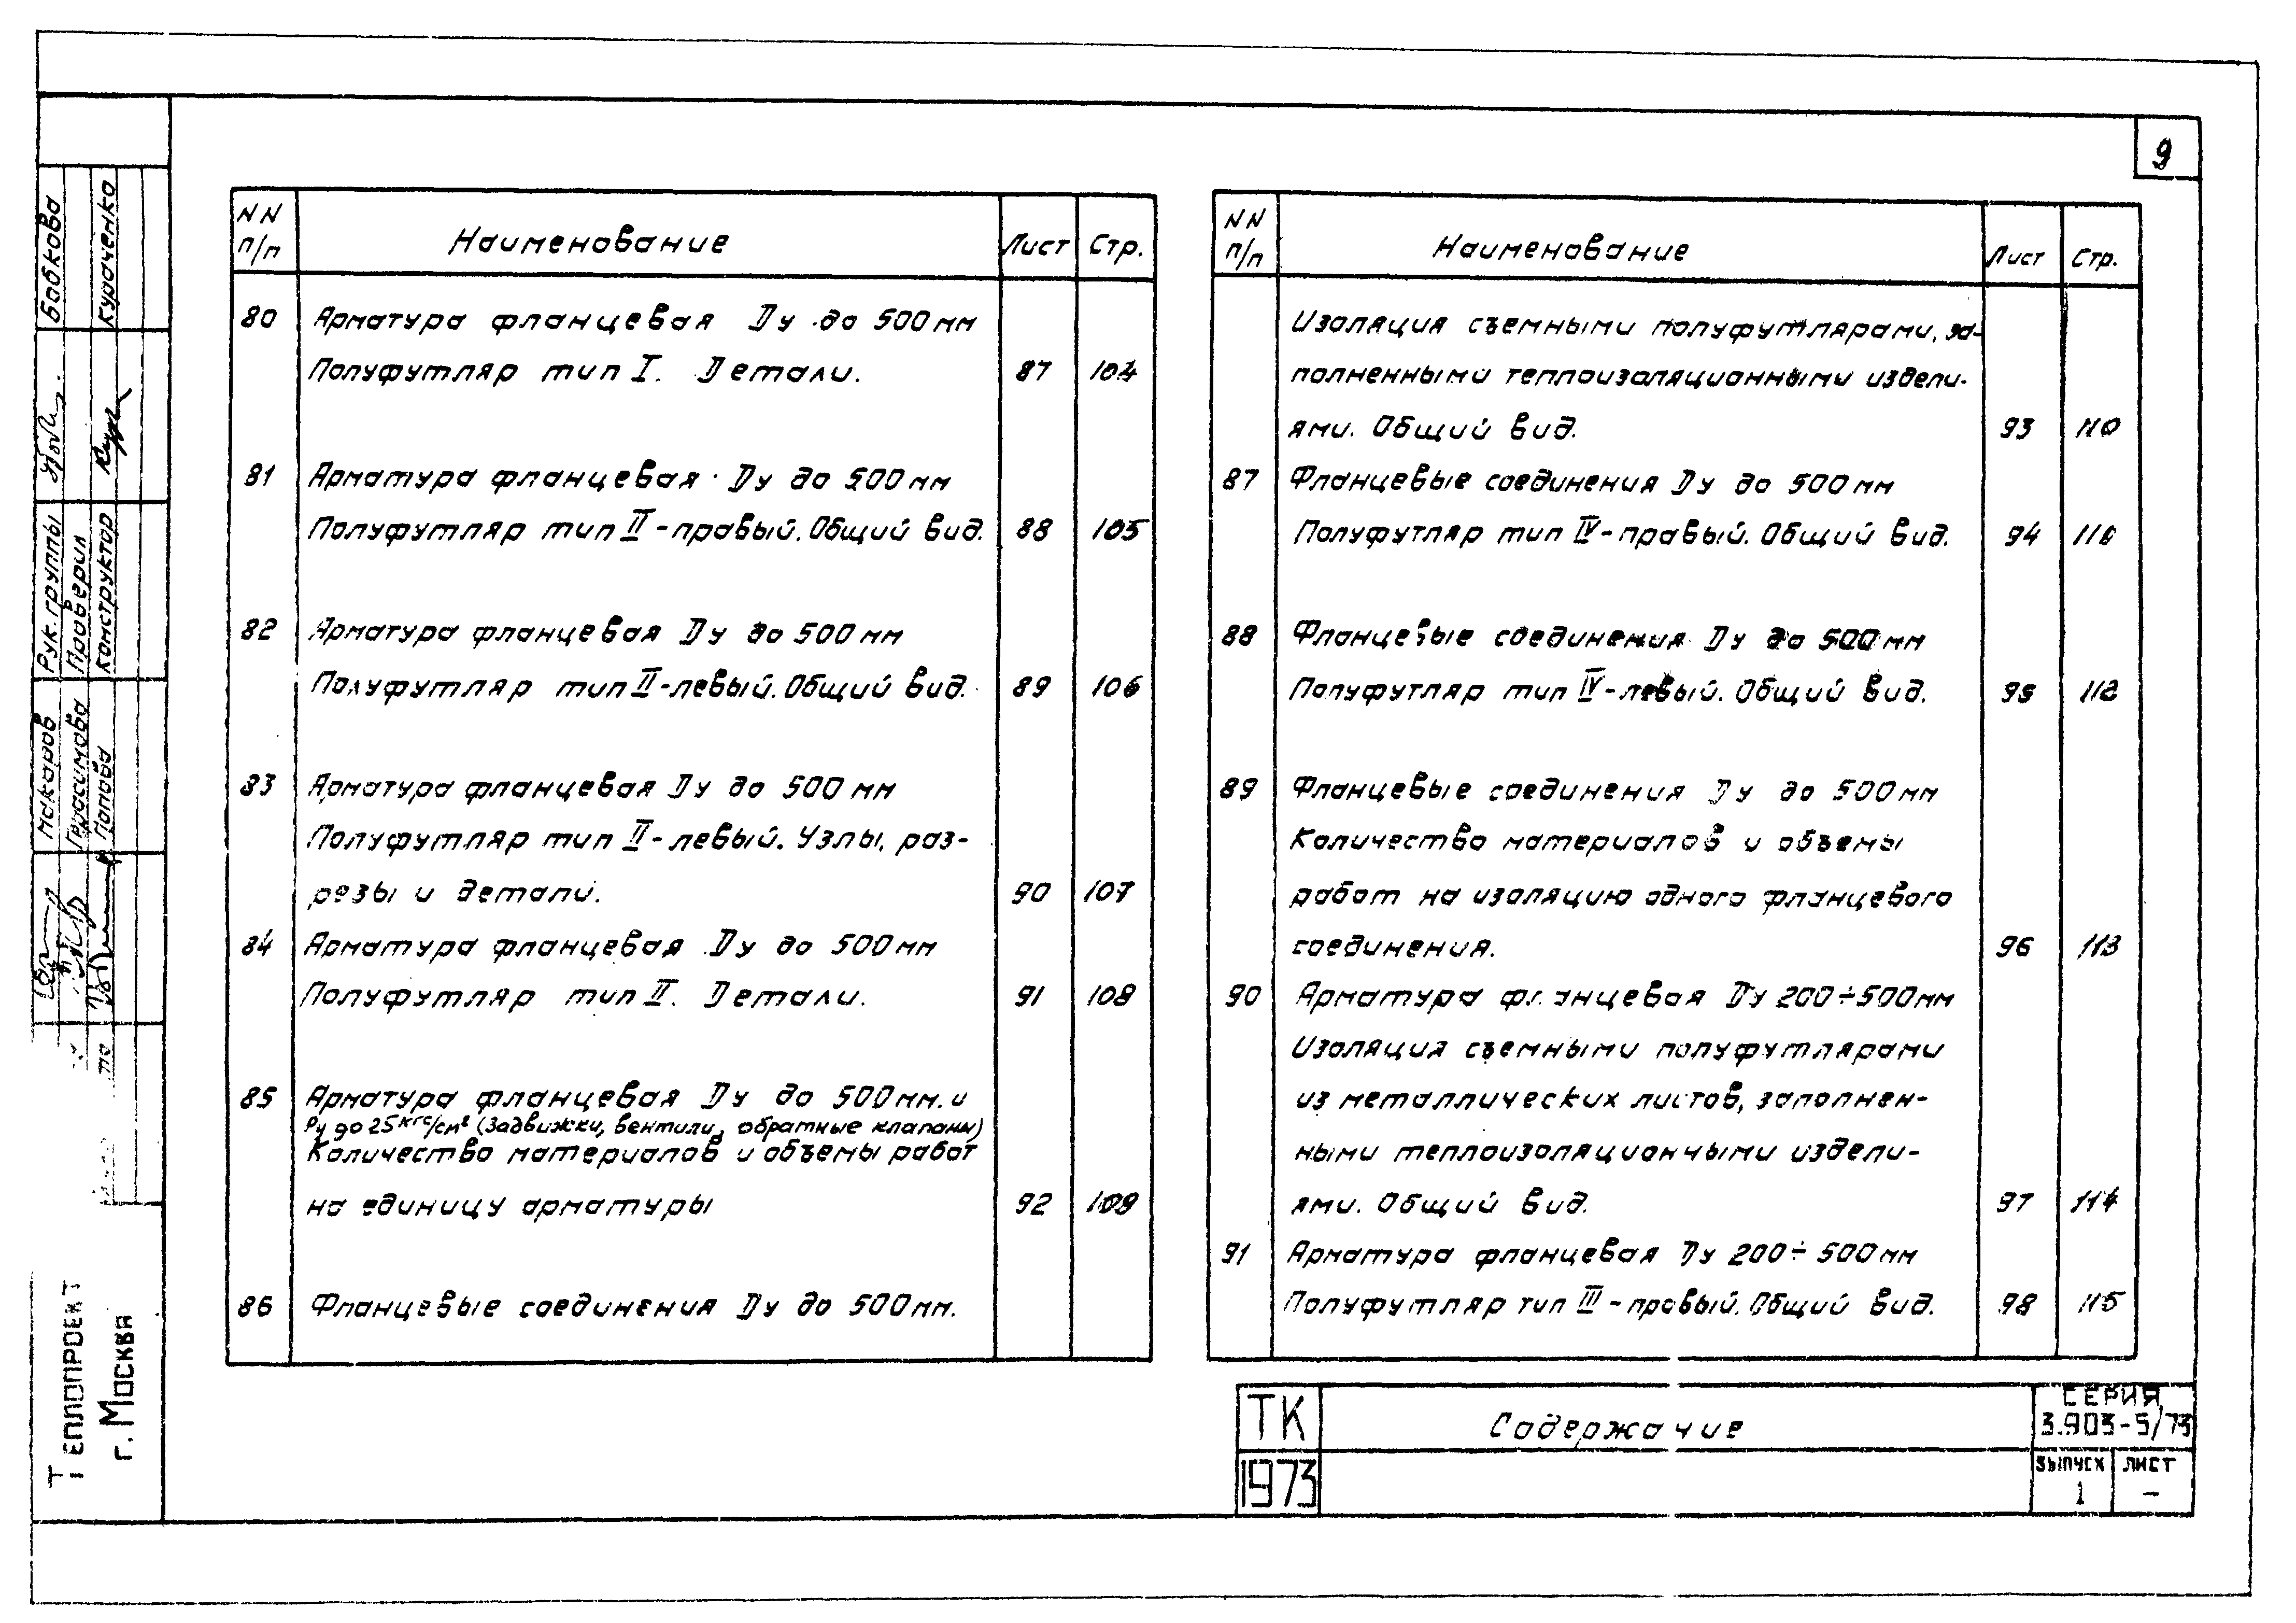 9
NN п/п Наименование Лист Стр.
80 Арматура фланцевая Dу до 500 мм
Полуфутляр тип I. Детали. 87 104
81 Арматура фланцевая Dу до 500 мм
Полуфутляр тип II - правый. Общий вид. 88 105
82 Арматура фланцевая Dу до 500 мм
Полуфутляр тип II - левый. Общий вид. 89 106
83 Арматура фланцевая Dу до 500 мм
Полуфутляр тип II - левый. Узлы, раз-
резы и детали. 90 107
84 Арматура фланцевая Dу до 500 мм
Полуфутляр тип II. Детали. 91 108
85 Арматура фланцевая Dу до 500 мм. и
Ру до 25 кгс/см² (задвижки, вентили, обратные клапаны)
Количество материалов и объемы работ
на единицу арматуры 92 109
86 Фланцевые соединения Dу до 500 мм.
NN п/п Наименование Лист Стр.
Изоляция съемными полуфутлярами, за-
полненными теплоизоляционными издели-
ями. Общий вид. 93 110
87 Фланцевые соединения Dу до 500 мм
Полуфутляр тип IV - правый. Общий вид. 94
88 Фланцевые соединения Dу до 500 мм
Полуфутляр тип IV - левый. Общий вид. 95 112
89 Фланцевые соединения Dу до 500 мм
Количество материалов и объемы
работ на изоляцию одного фланцевого
соединения. 96 113
90 Арматура фланцевая Dу 200÷500 мм
Изоляция съемными полуфутлярами
из металлических листов, заполнен-
ными теплоизоляционными издели-
ями. Общий вид. 97 114
91 Арматура фланцевая Dу 200÷500 мм
Полуфутляр тип III - правый. Общий вид. 98 115
ТК
1973
Содержание
СЕРИЯ
3.903-5/73
ВЫПУСК ЛИСТ
1 –
Бобкова
Кураченко
Рук. группы
Проверил
Конструктор
Макаров
Герасимова
Попова
ТЕПЛОПРОЕКТ
г. МОСКВА